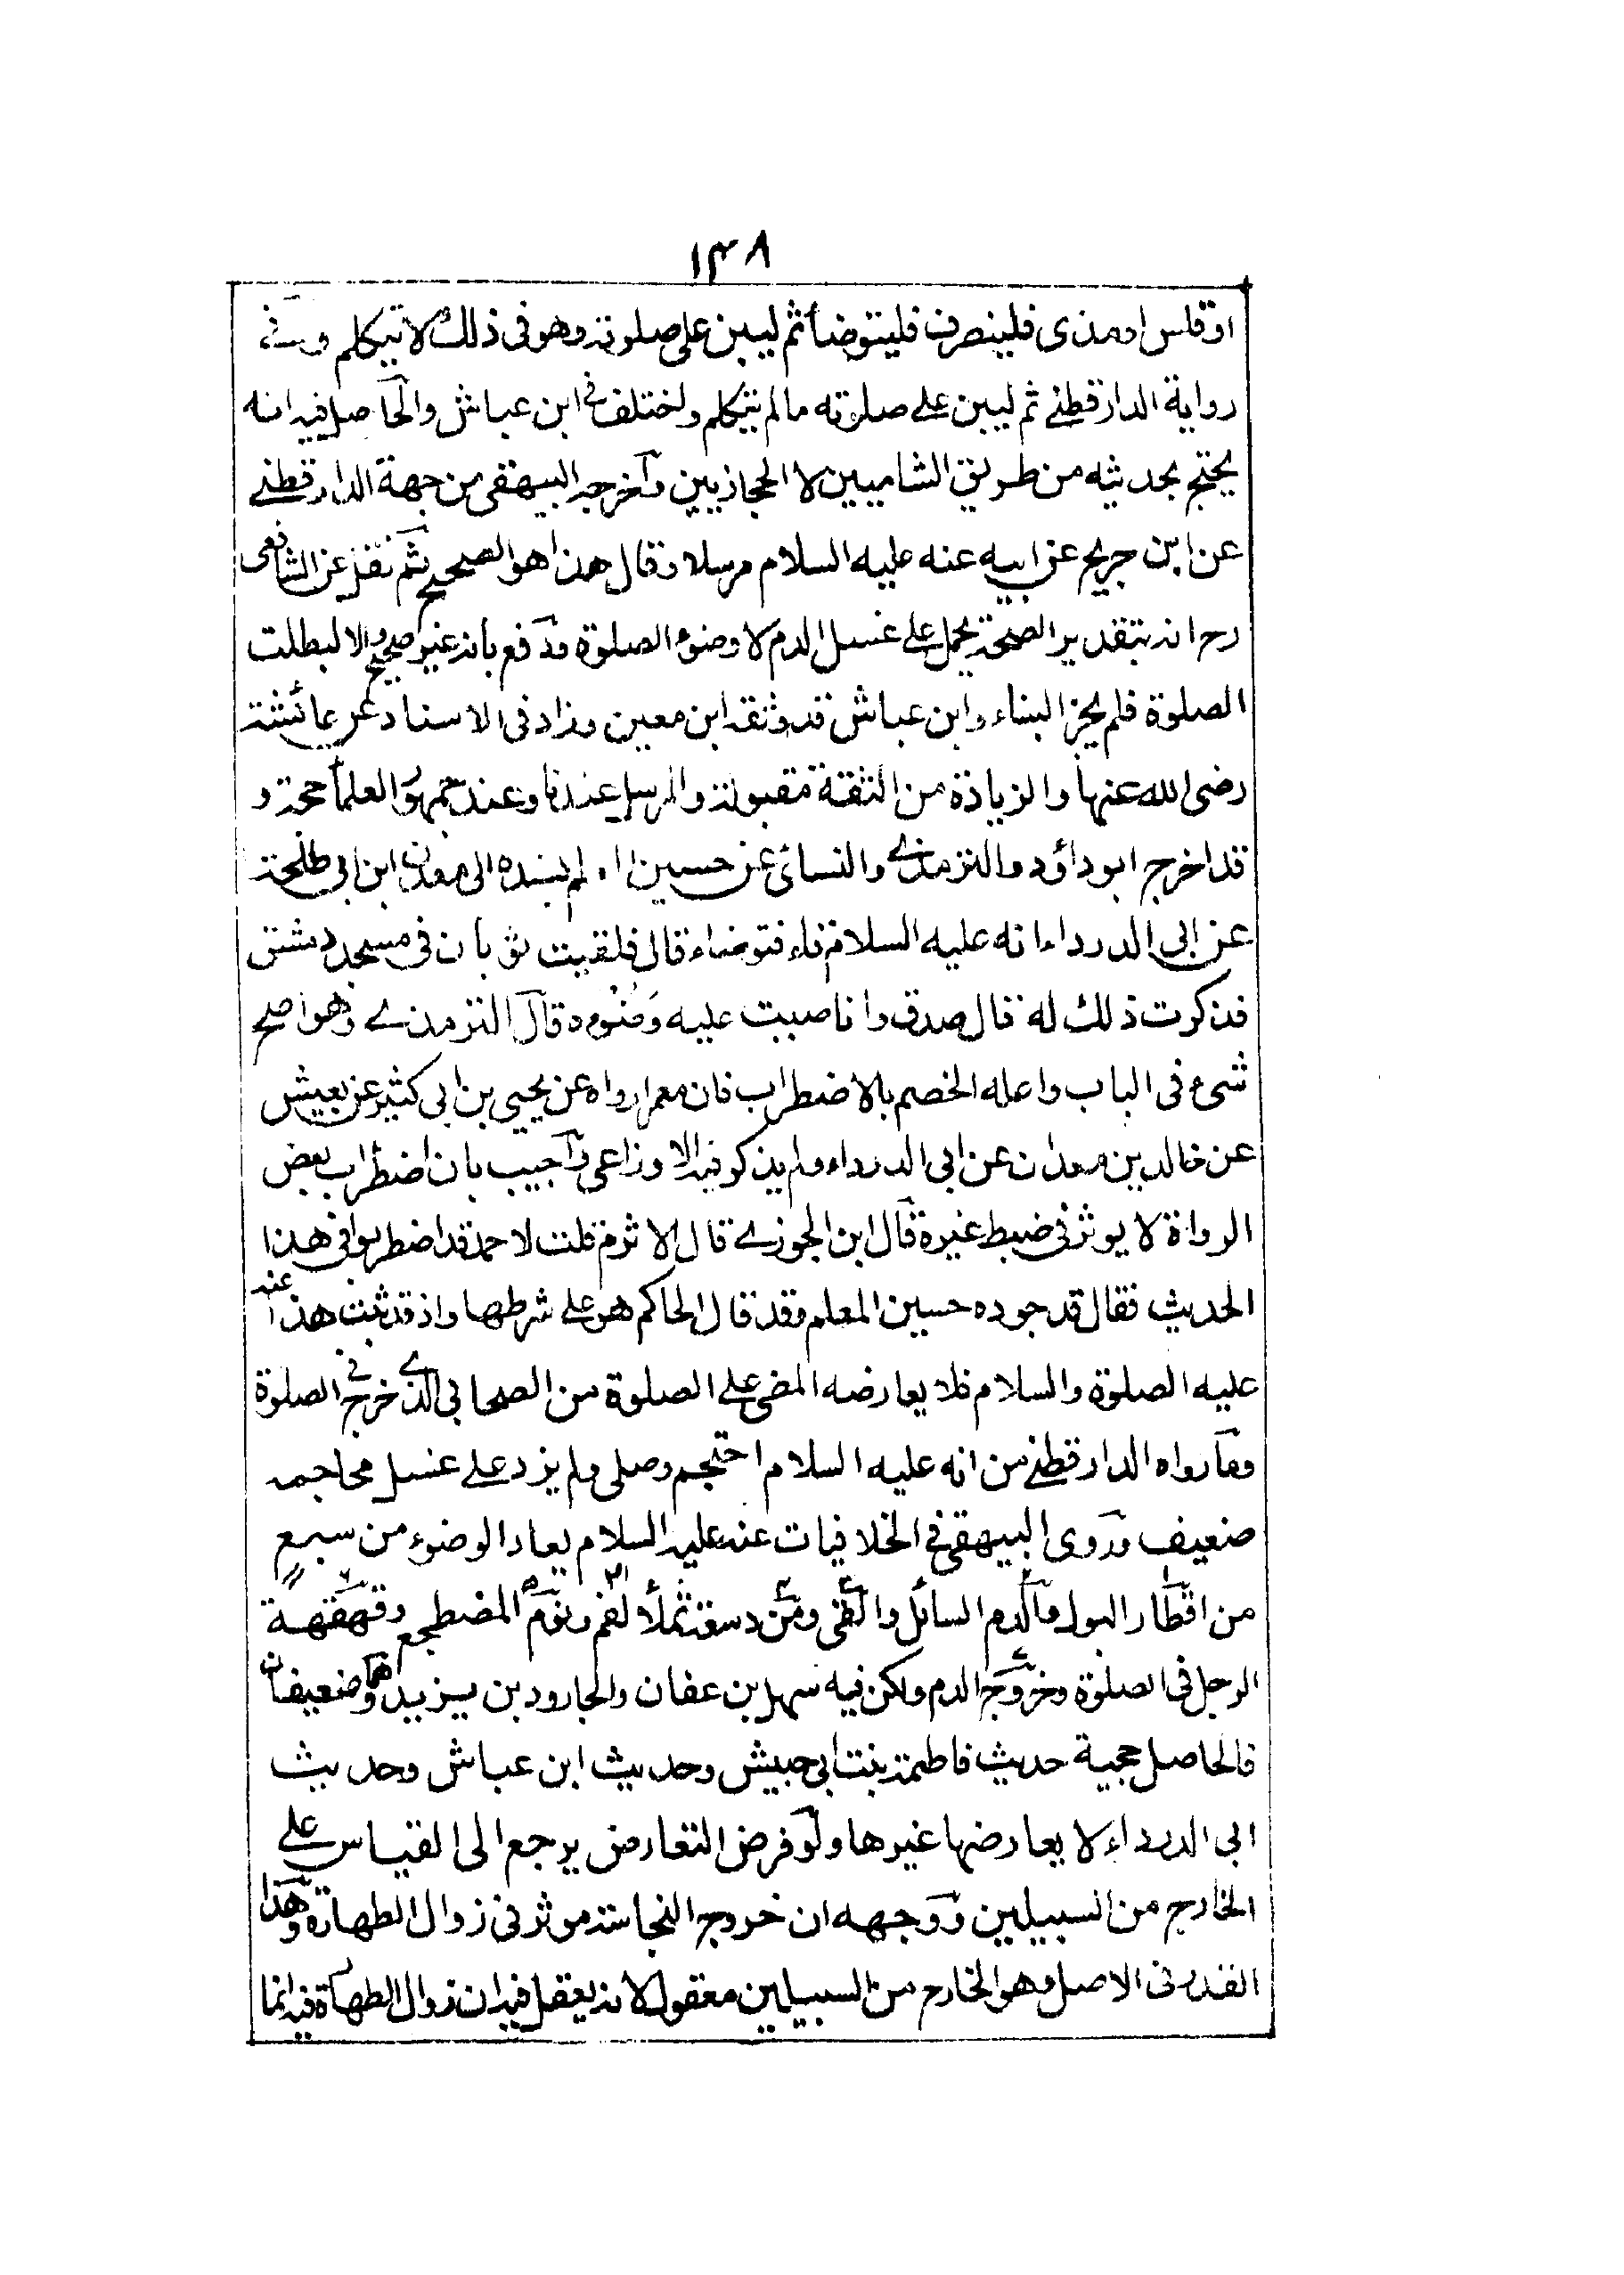 ١٣٨
او قلس او مذى فلينصرف فليتوضأ ثم ليبن على صلوته وهو فى ذلك لا يتكلم وفى
رواية الدارقطنے ثم ليبن علے صلوته ما لم يتكلم واختلف فى ابن عباش والحاصل فيه انه
يحتج بحديثه من طريق الشاميين لا الحجازيين وآخرجه البيهقى من جهة الدارقطنے
عن ابن جريج عن ابيه عنه عليه السلام مرسلا وقال هذا هو الصحيح ثم نقل عن الشافعى
رح انه بتقدير الصحة يحمل علے غسل الدم لا وضوء الصلوة ودفع بانه غير صحيح والا لبطلت
الصلوة فلم يجز البناء وابن عباش قد وثقه ابن معين وزاد فى الاسناد عن عائشة
رضى الله عنها والزيادة من الثقة مقبولة والمرسل عندنا وعند جمهور العلماء حجة و
قد اخرج ابو داؤد والترمذے والنسائى عن حسين المعلم بسنده الى معدان ابن ابى طلحة
عن ابى الدرداء انه عليه السلام قاء فتوضاء قال فلقيت ثوبان فى مسجد دمشق
فذكرت ذلك له فقال صدق وانا صببت عليه وضوءه قال الترمذے وهو اصح
شىء فى الباب واعله الخصم بالاضطراب فان معمرا رواه عن يحيى بن ابى كثير عن يعيش
عن خالد بن معدان عن ابى الدرداء ولم يذكر فيه الاوزاعى وآجيب بان اضطراب بعض
الرواة لا يوثر فى ضبط غيره قال ابن الجوزے قال الاثرم قلت لاحمد قد اضطربوا فى هذا
الحديث فقال قد جوده حسين المعلم وقد قال الحاكم هو علے شرطها واذ قد ثبت هذا عنه
عليه الصلوة والسلام فلا يعارضه المضى علے الصلوة من الصحابى الذے خرج فى الصلوة
وما رواه الدارقطنے من انه عليه السلام احتجم وصلى ولم يزد علے غسل محاجمه
ضعيف وروى البيهقى فى الخلافيات عنه عليه السلام يعاد الوضوء من سبع
من اقطار البول والدم السائل والقئ ومن دسقة تملأ الفم ونوم المضطجع وقهقهة
الرجل فى الصلوة وخروج الدم ولكن فيه سهل بن عفان والجارود بن يزيد وهما ضعيفان
فالحاصل حجية حديث فاطمة بنت ابى حبيش وحديث ابن عباش وحديث
ابى الدرداء لا يعارضها غيرها ولو فرض التعارض يرجع الى القياس علے
الخارج من السبيلين ووجهه ان خروج النجاسة موثر فى زوال الطهارة وهذا
القدر فى الاصل وهو الخارج من السبيلين معقول لانه يعقل فيه ان زوال الطهارة فيه انما